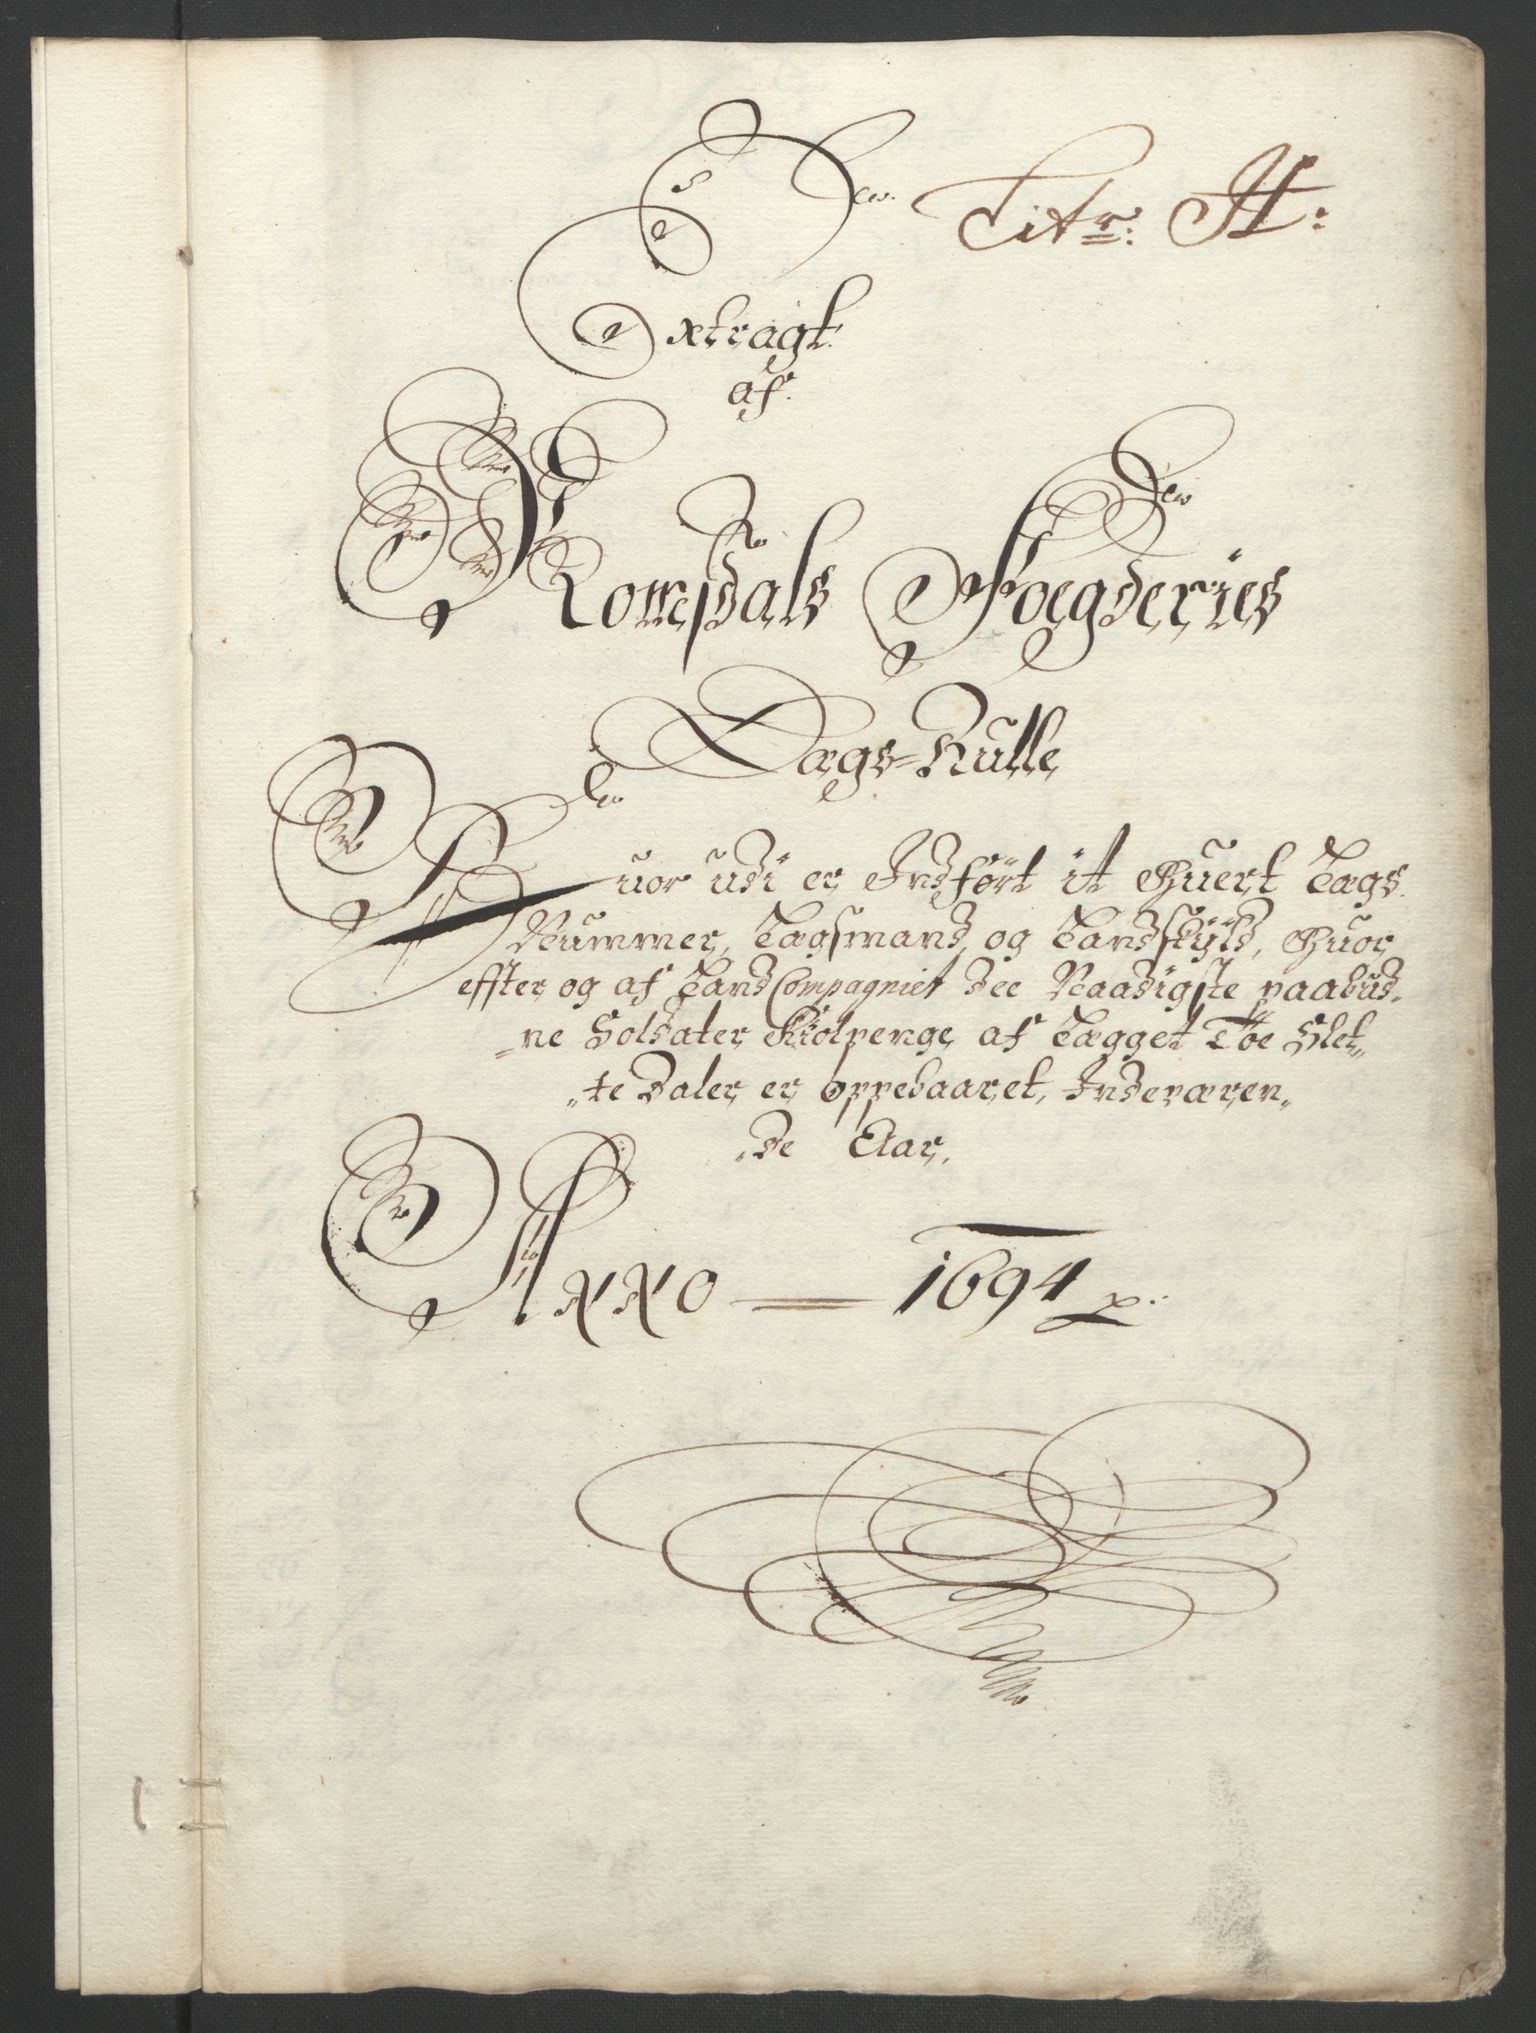 Litr: H:
Extragt
af
Romsdals Foegderies
Lægs-Rulle
Huor udi er Indført it Huert Lægs
Nummer, Lægsmand, og Landskyld, Huor
effter og af Land Compagniet dee Naadigste paabud„
„ne Soldater Kiolpenge af Lægget Toe Slet„
„te daler er oppebaaret, Indeværen„
„de Aar,
ANNO 1694